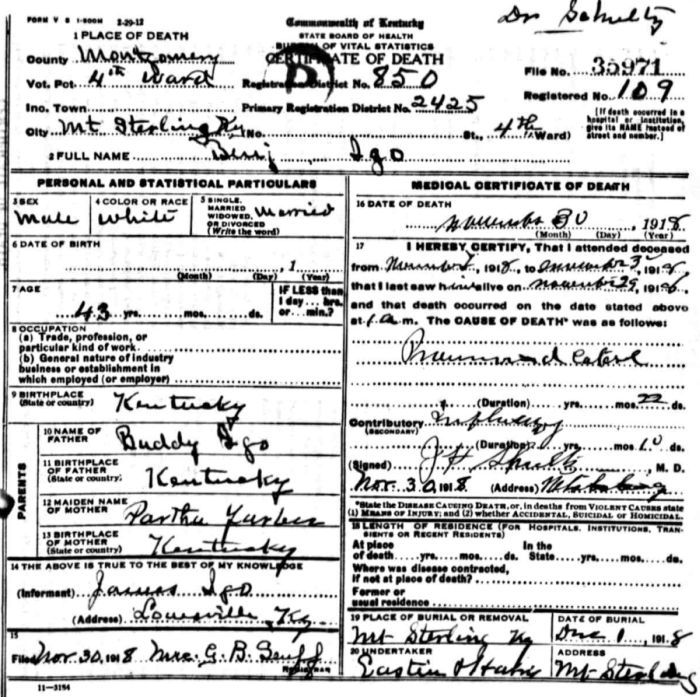 FORM V S 1-500M 2-29-12
Commonwealth of Kentucky
Dr Schultz
STATE BOARD OF HEALTH
BUREAU OF VITAL STATISTICS
CERTIFICATE OF DEATH
1 PLACE OF DEATH
County Montgomery
Vot. Pct 4th Ward
Registration District No. 850
File No. 35971
Inc. Town
Primary Registration District No. 2425
Registered No. 109
City Mt Sterling Ky (No. St., 4th Ward)
[If death occurred in a hospital or institution, give its NAME instead of street and number.]
2 FULL NAME Benj Igo
PERSONAL AND STATISTICAL PARTICULARS
3 SEX Male
4 COLOR OR RACE White
5 SINGLE, MARRIED WIDOWED, OR DIVORCED (Write the word) Married
6 DATE OF BIRTH
(Month) (Day) , 1 (Year)
7 AGE
43 yrs. mos. ds.
IF LESS than 1 day... hrs. or... min.?
8 OCCUPATION
(a) Trade, profession, or particular kind of work
(b) General nature of industry business or establishment in which employed (or employer)
9 BIRTHPLACE (State or country) Kentucky
PARENTS
10 NAME OF FATHER Buddy Igo
11 BIRTHPLACE OF FATHER (State or country) Kentucky
12 MAIDEN NAME OF MOTHER
13 BIRTHPLACE OF MOTHER (State or country) Kentucky
14 THE ABOVE IS TRUE TO THE BEST OF MY KNOWLEDGE
(Informant) James Igo
(Address) Louisville, Ky
15
Filed Nov. 30, 1918 Mrs. G. B.
REGISTRAR
11-3184
MEDICAL CERTIFICATE OF DEATH
16 DATE OF DEATH
November 30 , 1918
(Month) (Day) (Year)
17 I HEREBY CERTIFY, That I attended deceased
from November , 1918, to November 30, 1918,
that I last saw him alive on November 29, 1918,
and that death occurred on the date stated above
at 1 a m. The CAUSE OF DEATH* was as follows:
(Duration) yrs. mos. ds.
Contributory Influenza
(SECONDARY)
(Duration) yrs. mos. 10 ds.
(Signed) , M. D.
Nov. 30, 1918 (Address)
*State the DISEASE CAUSING DEATH, or, in deaths from VIOLENT CAUSES state (1) MEANS OF INJURY; and (2) whether ACCIDENTAL, SUICIDAL or HOMICIDAL.
18 LENGTH OF RESIDENCE (FOR HOSPITALS, INSTITUTIONS, TRANSIENTS OR RECENT RESIDENTS)
At place of death yrs. mos. ds. In the State yrs. mos. ds.
Where was disease contracted, if not at place of death?
Former or usual residence
19 PLACE OF BURIAL OR REMOVAL
Mt Sterling Ky
DATE OF BURIAL
Dec 1, 1918
20 UNDERTAKER
Eastin
ADDRESS
Mt Sterling